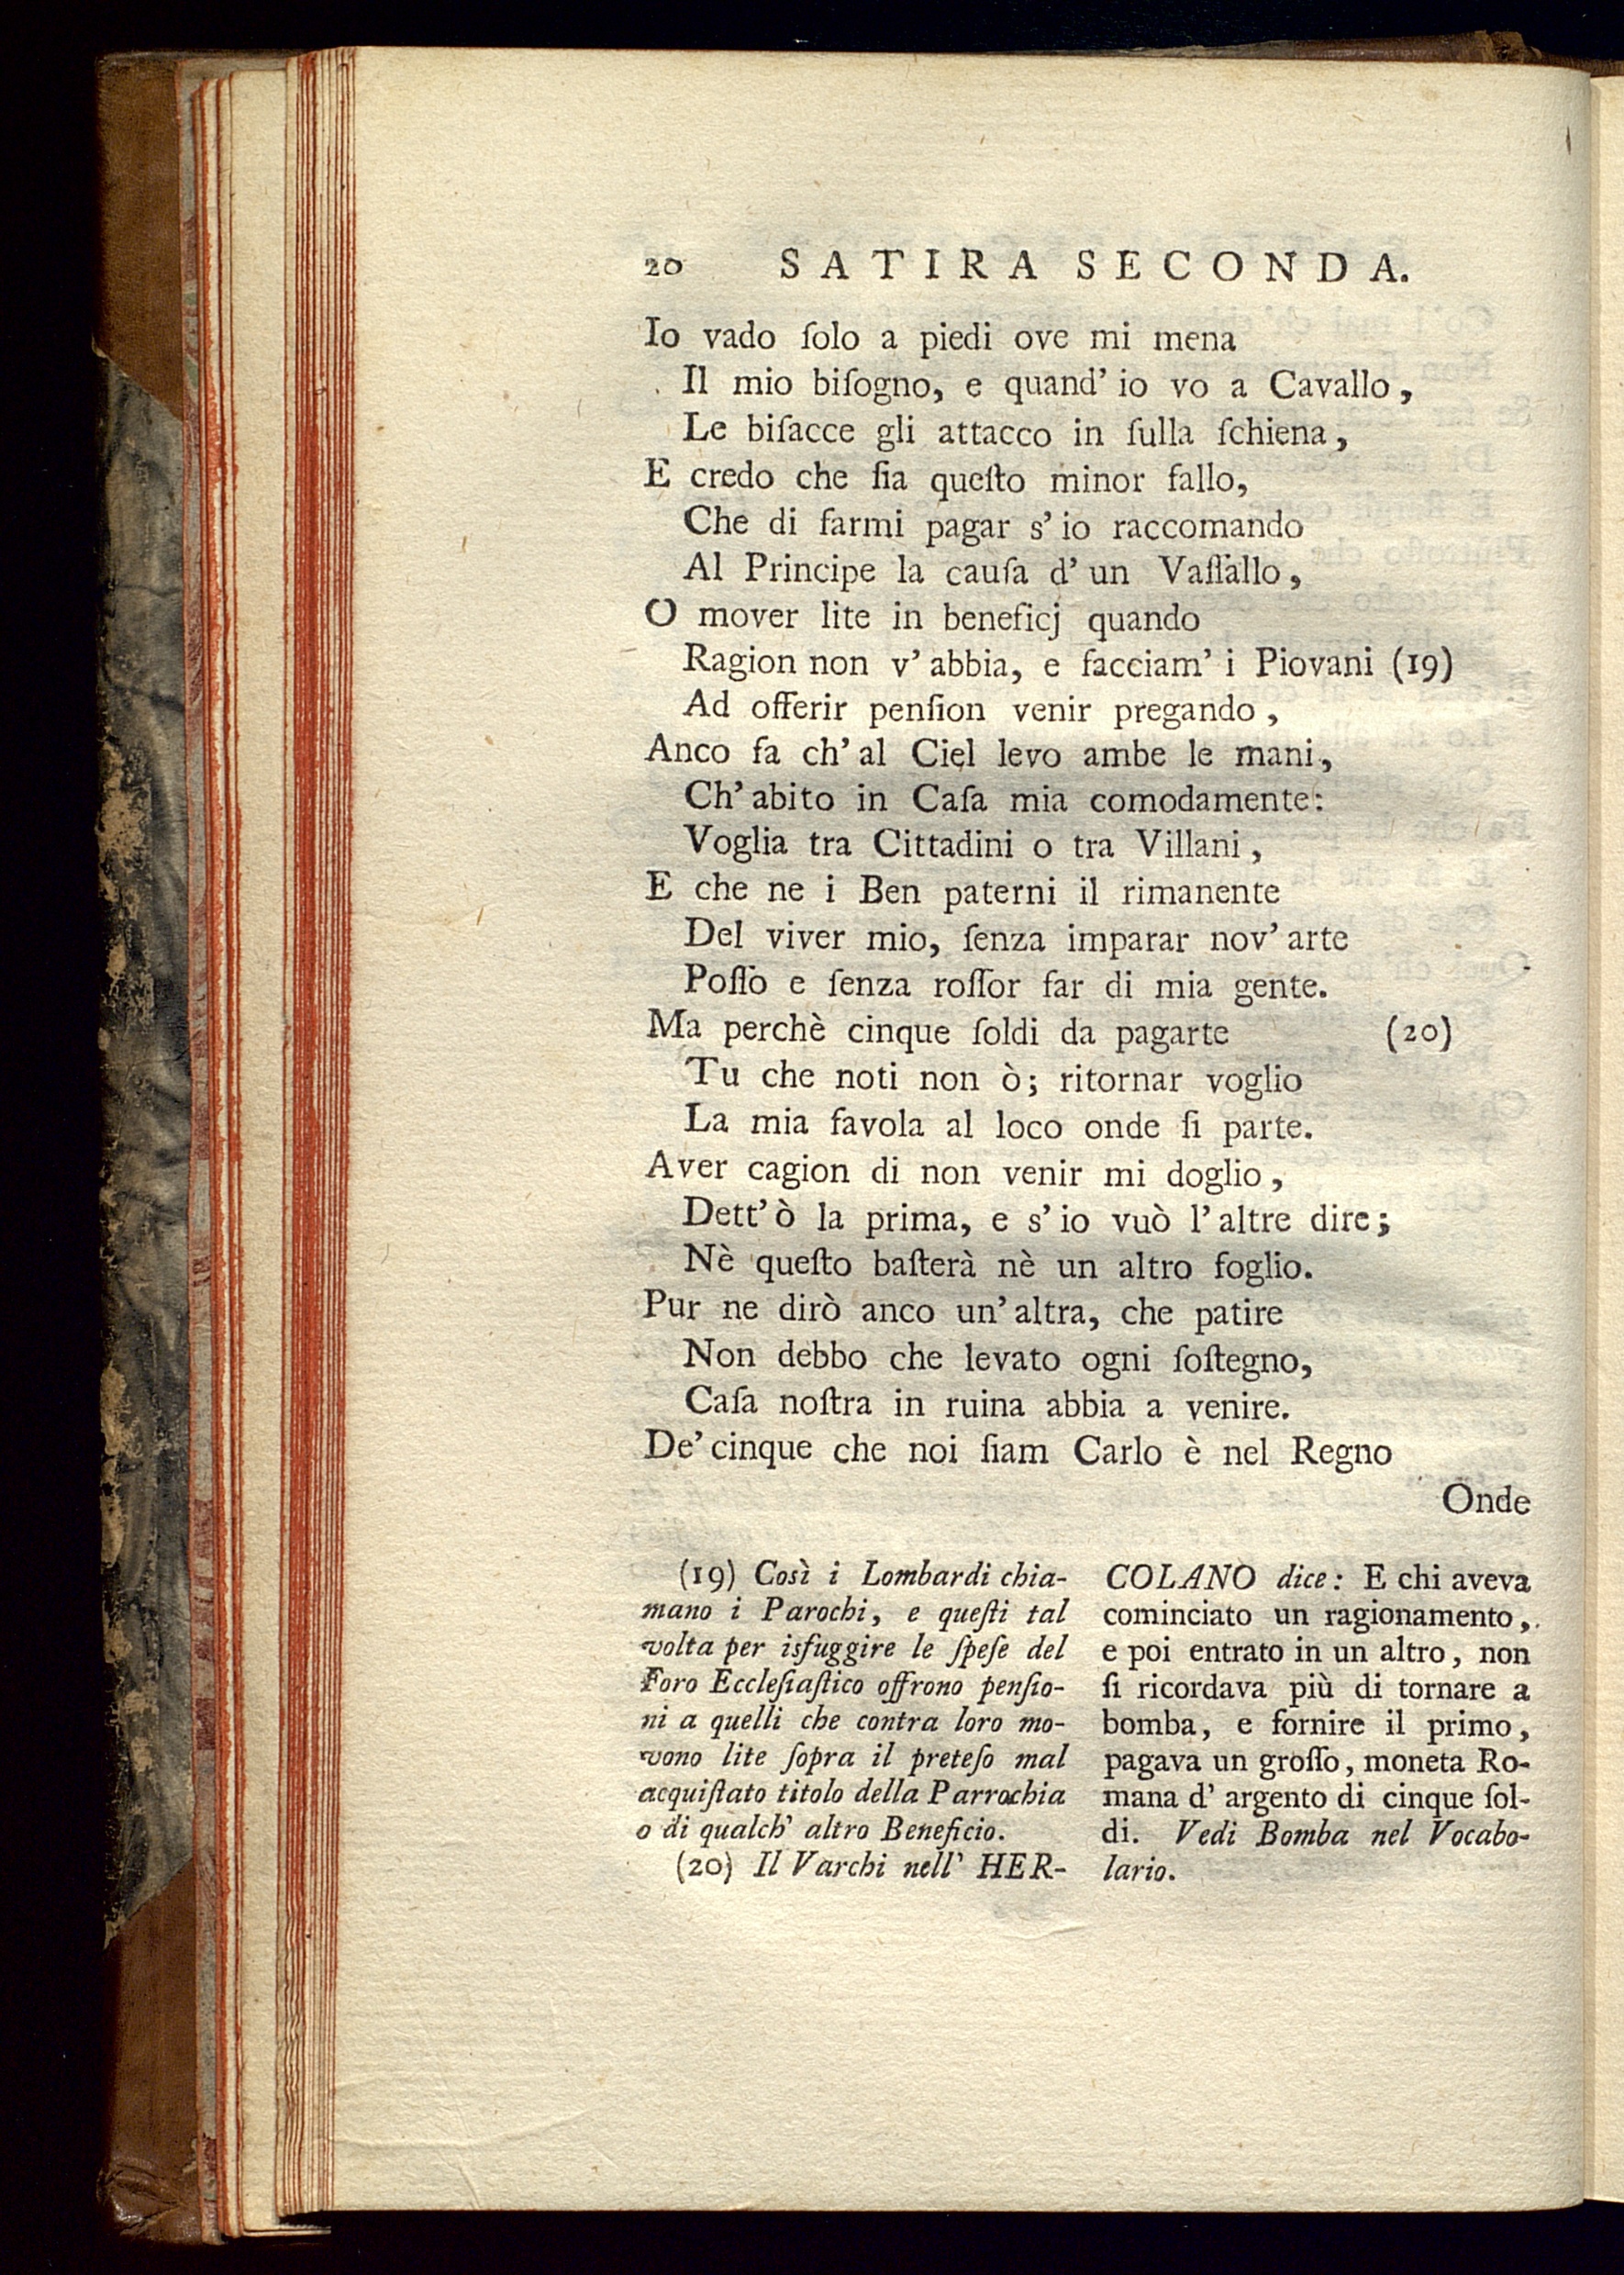 20 SATIRA SECONDA.
Io vado ſolo a piedi ove mi mena
Il mio biſogno, e quand' io vo a Cavallo,
Le biſacce gli attacco in ſulla ſchiena,
E credo che ſia queſto minor fallo,
Che di farmi pagar s' io raccomando
Al Principe la cauſa d' un Vaſſallo,
O mover lite in beneficj quando
Ragion non v' abbia, e facciam' i Piovani (19)
Ad offerir penſion venir pregando,
Anco fa ch' al Ciel levo ambe le mani,
Ch' abito in Caſa mia comodamente:
Voglia tra Cittadini o tra Villani,
E che ne i Ben paterni il rimanente
Del viver mio, ſenza imparar nov' arte
Poſſo e ſenza roſſor far di mia gente.
Ma perchè cinque ſoldi da pagarte (20)
Tu che noti non ò; ritornar voglio
La mia favola al loco onde ſi parte.
Aver cagion di non venir mi doglio,
Dett' ò la prima, e s' io vuò l' altre dire;
Nè queſto baſterà nè un altro foglio.
Pur ne dirò anco un' altra, che patire
Non debbo che levato ogni ſoſtegno,
Caſa noſtra in ruina abbia a venire.
De' cinque che noi ſiam Carlo è nel Regno
Onde
(19) Così i Lombardi chia-
mano i Parochi, e queſti tal
volta per isfuggire le ſpeſe del
Foro Eccleſiaſtico offrono penſio-
ni a quelli che contra loro mo-
vono lite ſopra il preteſo mal
acquiſtato titolo della Parrochia
o di qualch' altro Beneficio.
(20) Il Varchi nell' HER-
COLANO dice: E chi aveva
cominciato un ragionamento,
e poi entrato in un altro, non
ſi ricordava più di tornare a
bomba, e fornire il primo,
pagava un groſſo, moneta Ro-
mana d' argento di cinque ſol-
di. Vedi Bomba nel Vocabo-
lario.